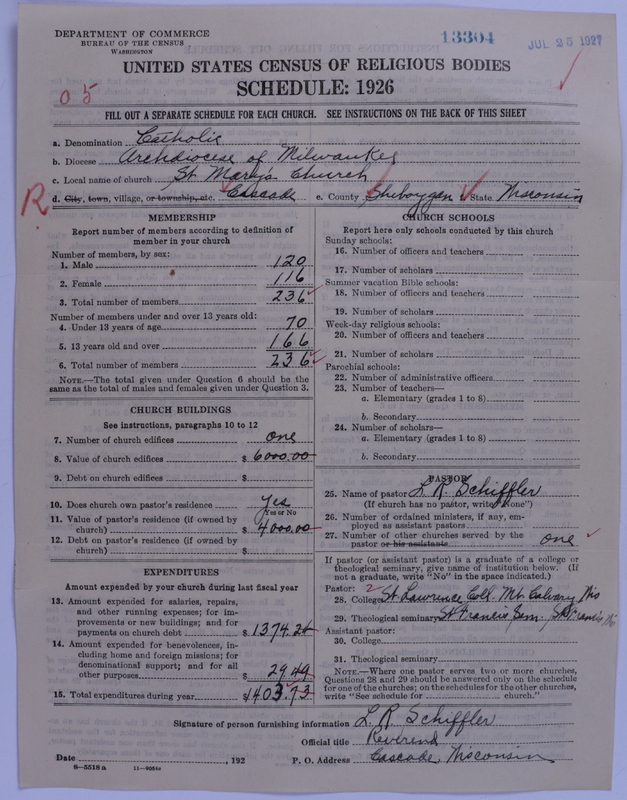 DEPARTMENT OF COMMERCE
BUREAU OF THE CENSUS
WASHINGTON
13304
JUL 25 1927
UNITED STATES CENSUS OF RELIGIOUS BODIES
SCHEDULE: 1926
05
FILL OUT A SEPARATE SCHEDULE FOR EACH CHURCH. SEE INSTRUCTIONS ON THE BACK OF THIS SHEET
a. Denomination Catholic
b. Diocese Archdiocese of Milwaukee
c. Local name of church St Mary's Church
R
d. City, town, village, or township, etc. Cascade e. County Sheboygan State Wisconsin
MEMBERSHIP
Report number of members according to definition of
member in your church
Number of members, by sex:
1. Male 120
2. Female 116
3. Total number of members 236
Number of members under and over 13 years old:
4. Under 13 years of age 70
5. 13 years old and over 166
6. Total number of members 236
NOTE.—The total given under Question 6 should be the
same as the total of males and females given under Question 3.
CHURCH BUILDINGS
See instructions, paragraphs 10 to 12
7. Number of church edifices one
8. Value of church edifices $ 6000.00
9. Debt on church edifices $
10. Does church own pastor's residence yes
Yes or No
11. Value of pastor's residence (if owned by
church) $ 4000.00
12. Debt on pastor's residence (if owned by
church) $
EXPENDITURES
Amount expended by your church during last fiscal year
13. Amount expended for salaries, repairs,
and other running expenses; for im-
provements or new buildings; and for
payments on church debt $ 1374.24
14. Amount expended for benevolences, in-
cluding home and foreign missions; for
denominational support; and for all
other purposes $ 29.49
15. Total expenditures during year $ 1403.73
CHURCH SCHOOLS
Report here only schools conducted by this church
Sunday schools:
16. Number of officers and teachers
17. Number of scholars
Summer vacation Bible schools:
18. Number of officers and teachers
19. Number of scholars
Week-day religious schools:
20. Number of officers and teachers
21. Number of scholars
Parochial schools:
22. Number of administrative officers
23. Number of teachers—
a. Elementary (grades 1 to 8)
b. Secondary
24. Number of scholars—
a. Elementary (grades 1 to 8)
b. Secondary
PASTOR
25. Name of pastor L. R. Schiffler
(If church has no pastor, write "None")
26. Number of ordained ministers, if any, em-
ployed as assistant pastors
27. Number of other churches served by the
pastor or his assistants one
If pastor (or assistant pastor) is a graduate of a college or
theological seminary, give name of institution below. (If
not a graduate, write "No" in the space indicated.)
Pastor: 2
28. College St Lawrence Coll. Mt. Calvary Wis
29. Theological seminary St Francis Sem. St Francis Wis
Assistant pastor:
30. College
31. Theological seminary
NOTE.—Where one pastor serves two or more churches,
Questions 28 and 29 should be answered only on the schedule
for one of the churches; on the schedules for the other churches,
write "See schedule for church."
Signature of person furnishing information L. R. Schiffler
Official title Reverend
Date , 192 P. O. Address Cascade, Wisconsin
8-5518 a 11-9054